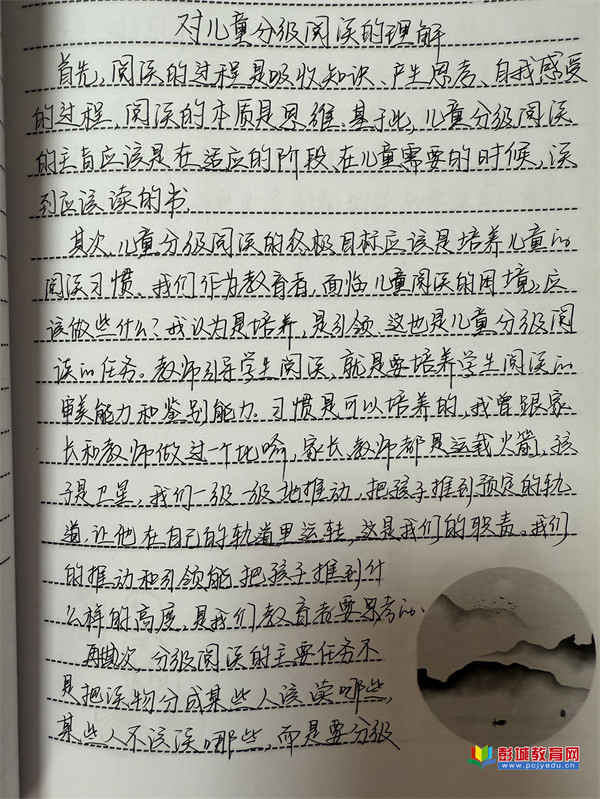 对儿童分级阅读的理解
首先,阅读的过程是吸收知识、产生思考、自我感受
的过程,阅读的本质是思维.基于此,儿童分级阅读
的主旨应该是在适应的阶段,在儿童需要的时候,读
到应该读的书.
其次,儿童分级阅读的终极目标应该是培养儿童的
阅读习惯.我们作为教育者,面临儿童阅读的困境,应
该做些什么?我认为是培养,是引领.这也是儿童分级阅
读的任务。教师引导学生阅读,就是要培养学生阅读的
审美能力和鉴别能力.习惯是可以培养的,我曾跟家
长和教师做过一个比喻,家长、教师都是运载火箭,孩
子是卫星,我们一级一级地推动,把孩子推到预定的轨
道,让他在自己的轨道里运转,这是我们的职责。我们
的推动和引领能把孩子推到什
么样的高度,是我们教育者要思考的.
再其次,分级阅读的主要任务不
是把读物分成某些人该读哪些,
某些人不该读哪些,而是要分级
彭城教育网
www.pcjyedu.cn